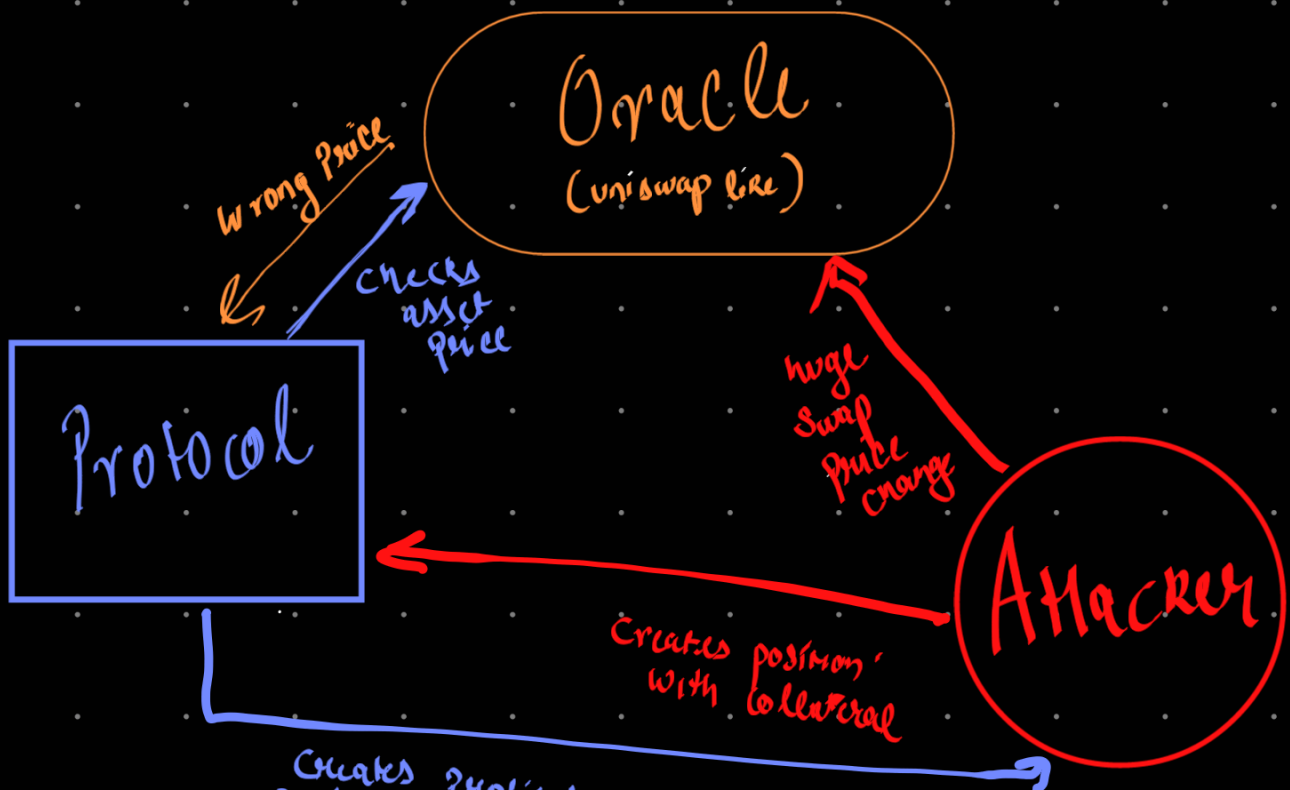 Oracle
(uniswap like)
Wrong Price
Checks
asset
price
Protocol
huge
swap
price
change
Attacker
Creates position
with collateral
Creates